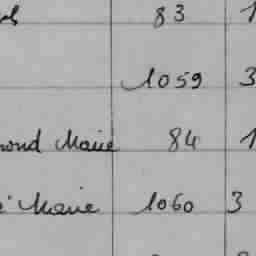 83 1
1059 3
mond Marie 84 1
Marie 1060 3